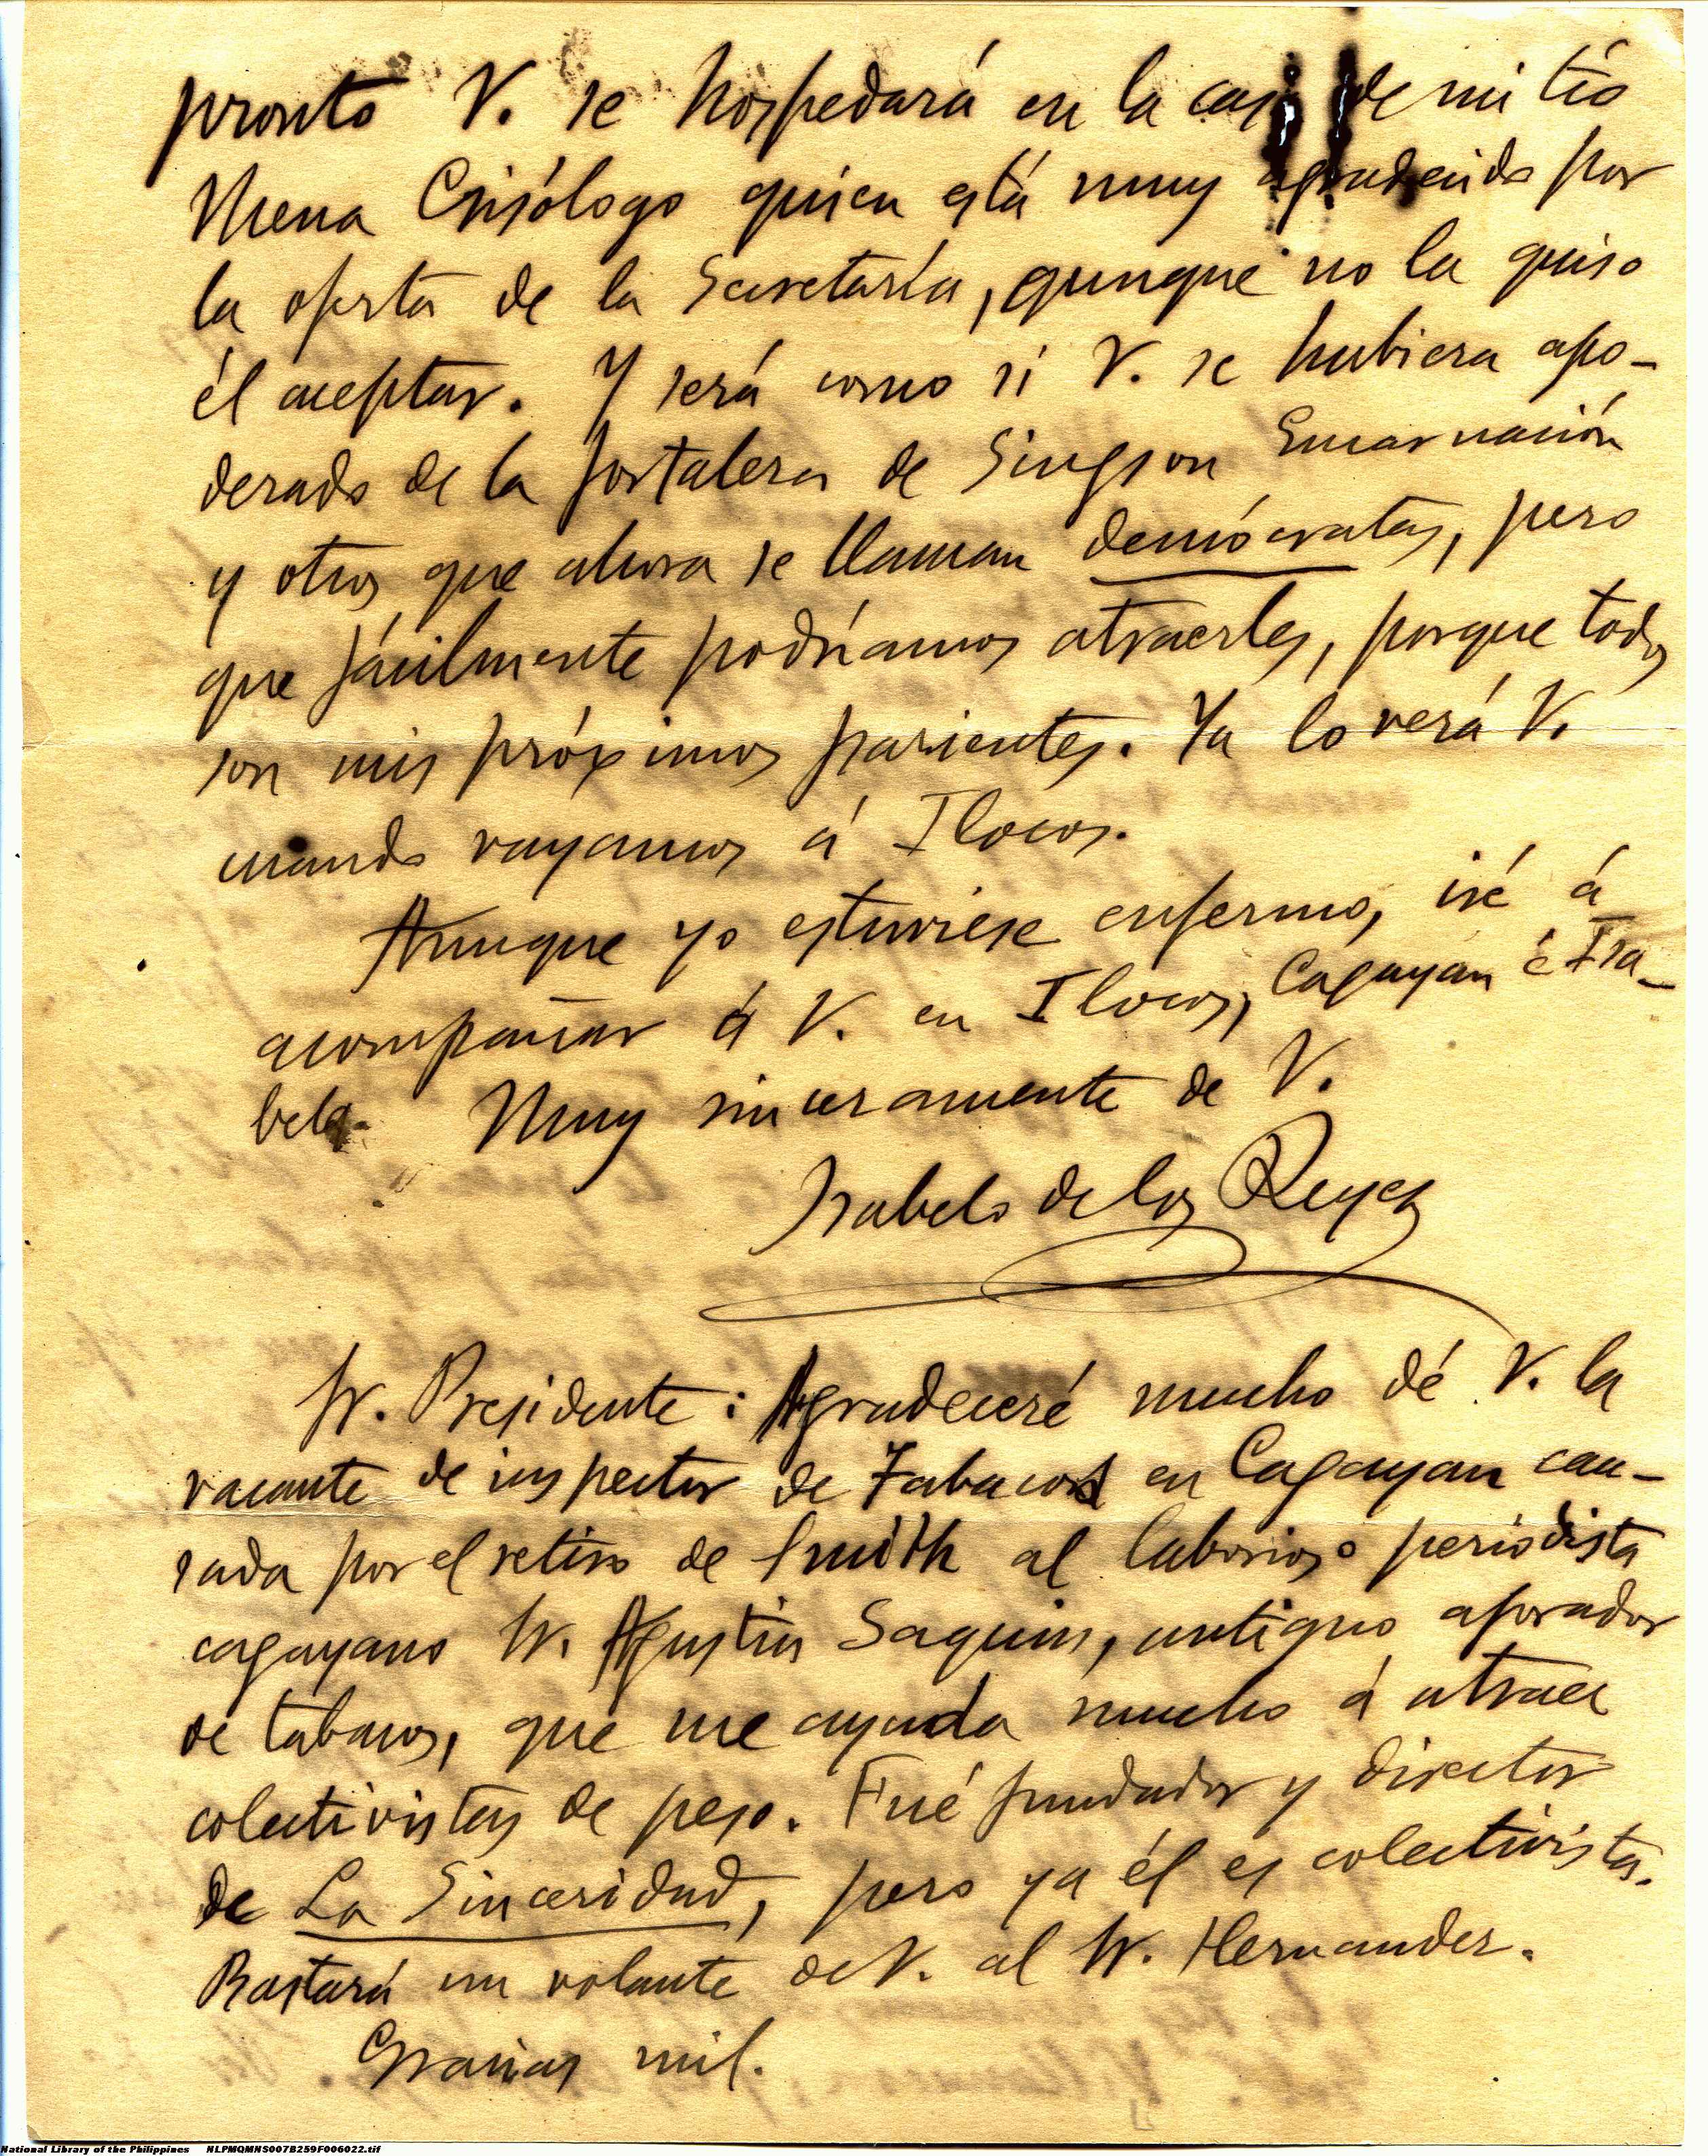 pronto V. se hospedará en la casa de mi tío
Mena Crisólogo quien está muy agradecido por
la oferta de la Secretaría, aunque no la quiso
él aceptar. Y será como si V. se hubiera apo-
derado de la fortaleza de Singson Encarnación
y otros que ahora se llaman demócratas, pero
que fácilmente podríamos atraerles, porque todos
son mis próximos parientes. Ya lo verá V.
cuando vayamos á Ilocos.
Aunque yo estuviese enfermo, iré á
acompañar á V. en Ilocos, Cagayán é Isa-
bela. Muy sinceramente de V.
Isabelo de los Reyes
Sr. Presidente: Agradeceré mucho dé V. la
vacante de inspector de Tabacos en Cagayan cau-
sada por el retiro de Smith al laborioso periodista
cagayano Sr. Agustin Saquin, antiguo aforador
de tabacos, que me ayuda mucho á atraer
colectivistas de peso. Fué fundador y director
de La Sinceridad, pero ya él es colectivista.
Bastará un volante de V. al Sr. Hernandez.
Gracias mil.
National Library of the Philippines NLPMQMNS007B259F006022.tif